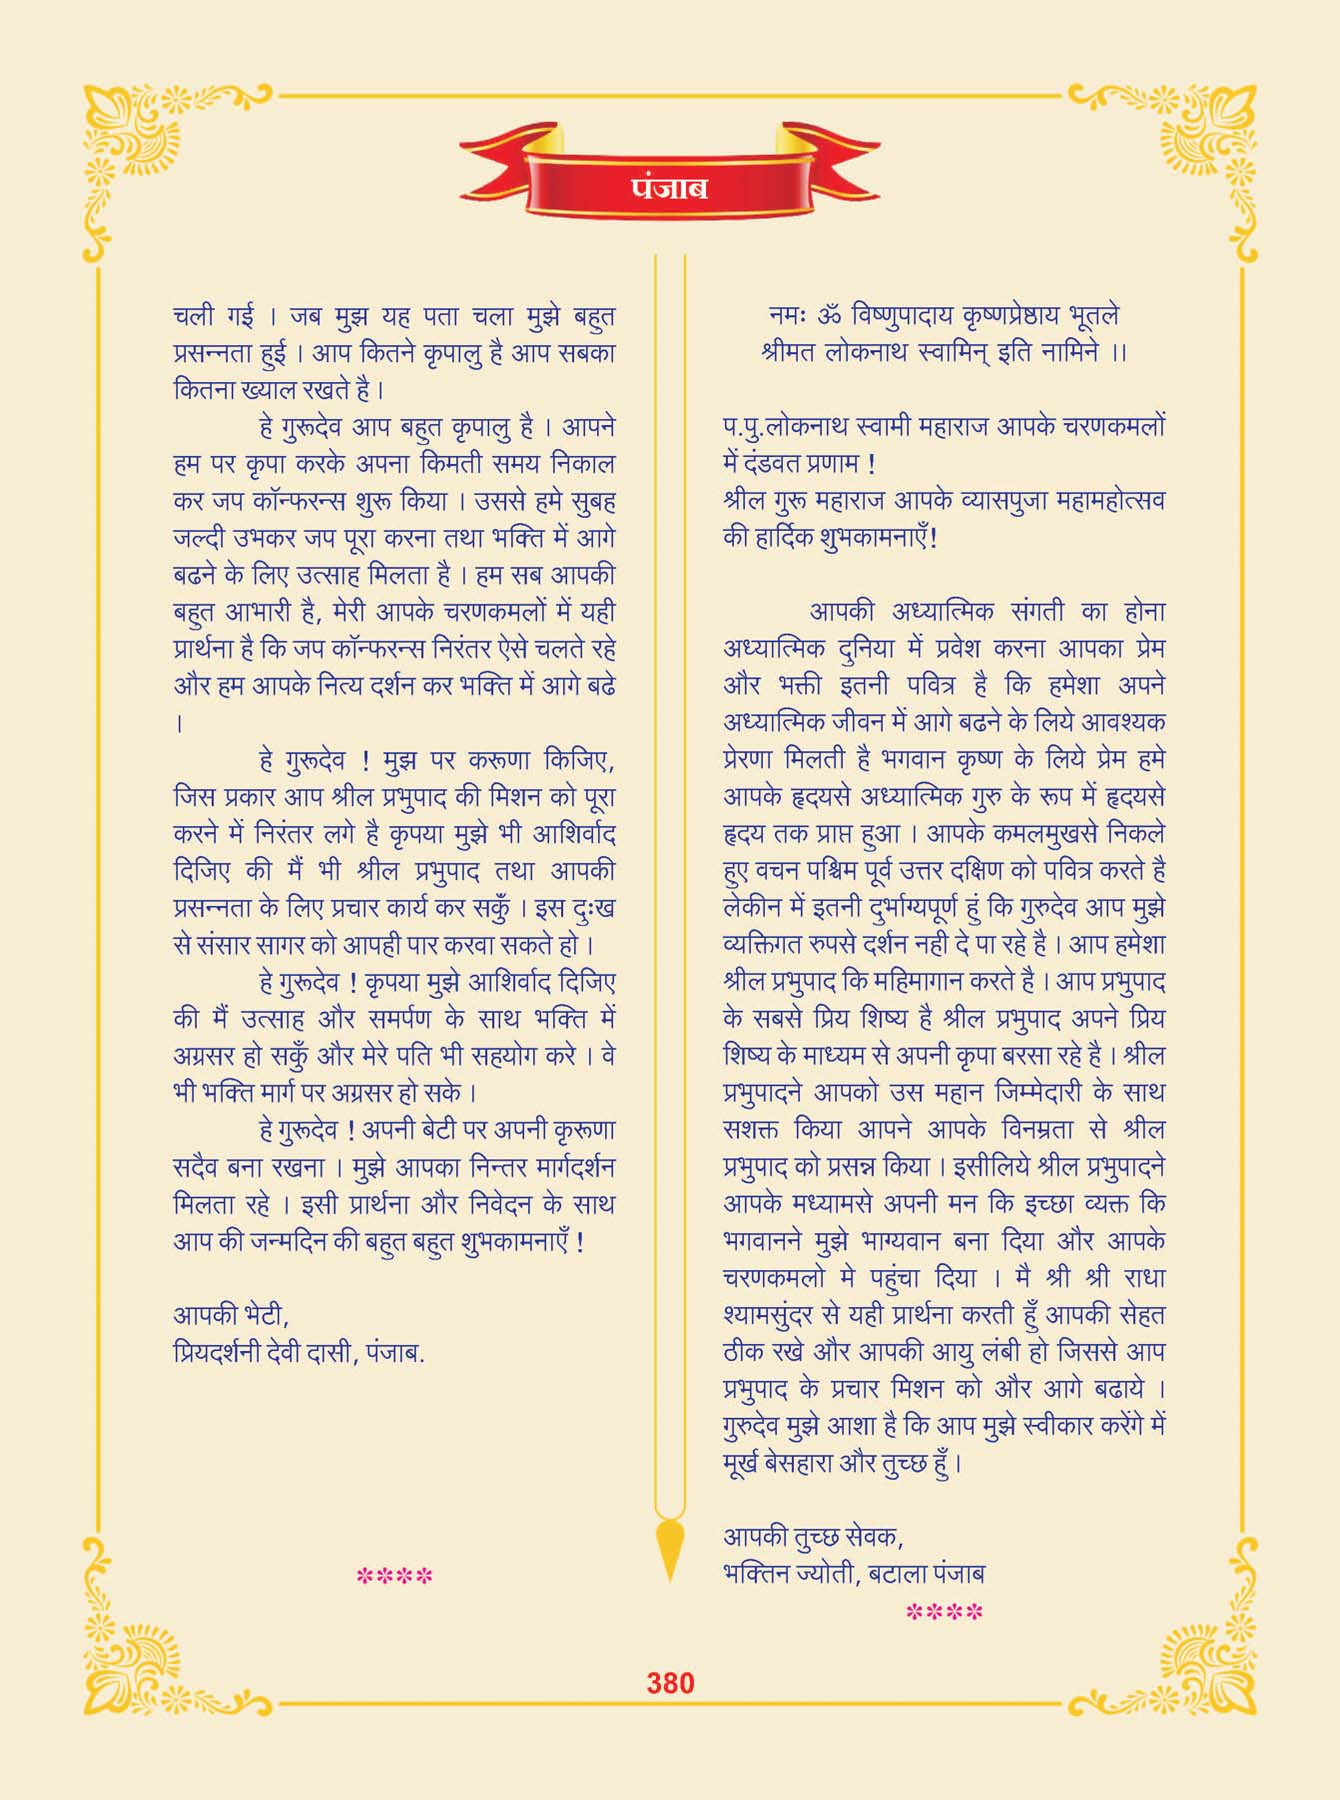 पंजाब
चली गई । जब मुझ यह पता चला मुझे बहुत
प्रसन्नता हुई । आप कितने कृपालु है आप सबका
कितना ख्याल रखते है ।
हे गुरूदेव आप बहुत कृपालु है । आपने
हम पर कृपा करके अपना किमती समय निकाल
कर जप कॉन्फरन्स शुरू किया । उससे हमे सुबह
जल्दी उभकर जप पूरा करना तथा भक्ति में आगे
बढने के लिए उत्साह मिलता है । हम सब आपकी
बहुत आभारी है, मेरी आपके चरणकमलों में यही
प्रार्थना है कि जप कॉन्फरन्स निरंतर ऐसे चलते रहे
और हम आपके नित्य दर्शन कर भक्ति में आगे बढे
।
हे गुरूदेव ! मुझ पर करूणा किजिए,
जिस प्रकार आप श्रील प्रभुपाद की मिशन को पूरा
करने में निरंतर लगे है कृपया मुझे भी आशिर्वाद
दिजिए की मैं भी श्रील प्रभुपाद तथा आपकी
प्रसन्नता के लिए प्रचार कार्य कर सकुँ । इस दुःख
से संसार सागर को आपही पार करवा सकते हो ।
हे गुरूदेव ! कृपया मुझे आशिर्वाद दिजिए
की मैं उत्साह और समर्पण के साथ भक्ति में
अग्रसर हो सकुँ और मेरे पति भी सहयोग करे । वे
भी भक्ति मार्ग पर अग्रसर हो सके ।
हे गुरूदेव ! अपनी बेटी पर अपनी कृरूणा
सदैव बना रखना । मुझे आपका निन्तर मार्गदर्शन
मिलता रहे । इसी प्रार्थना और निवेदन के साथ
आप की जन्मदिन की बहुत बहुत शुभकामनाएँ !
आपकी भेटी,
प्रियदर्शनी देवी दासी, पंजाब.
****
नमः ॐ विष्णुपादाय कृष्णप्रेष्ठाय भूतले
श्रीमत लोकनाथ स्वामिन् इति नामिने ।।
प.पु.लोकनाथ स्वामी महाराज आपके चरणकमलों
में दंडवत प्रणाम !
श्रील गुरू महाराज आपके व्यासपुजा महामहोत्सव
की हार्दिक शुभकामनाएँ!
आपकी अध्यात्मिक संगती का होना
अध्यात्मिक दुनिया में प्रवेश करना आपका प्रेम
और भक्ती इतनी पवित्र है कि हमेशा अपने
अध्यात्मिक जीवन में आगे बढने के लिये आवश्यक
प्रेरणा मिलती है भगवान कृष्ण के लिये प्रेम हमे
आपके हृदयसे अध्यात्मिक गुरु के रूप में हृदयसे
हृदय तक प्राप्त हुआ । आपके कमलमुखसे निकले
हुए वचन पश्चिम पूर्व उत्तर दक्षिण को पवित्र करते है
लेकीन में इतनी दुर्भाग्यपूर्ण हुं कि गुरुदेव आप मुझे
व्यक्तिगत रुपसे दर्शन नही दे पा रहे है । आप हमेशा
श्रील प्रभुपाद कि महिमागान करते है । आप प्रभुपाद
के सबसे प्रिय शिष्य है श्रील प्रभुपाद अपने प्रिय
शिष्य के माध्यम से अपनी कृपा बरसा रहे है । श्रील
प्रभुपादने आपको उस महान जिम्मेदारी के साथ
सशक्त किया आपने आपके विनम्रता से श्रील
प्रभुपाद को प्रसन्न किया । इसीलिये श्रील प्रभुपादने
आपके मध्यामसे अपनी मन कि इच्छा व्यक्त कि
भगवानने मुझे भाग्यवान बना दिया और आपके
चरणकमलो मे पहुंचा दिया । मै श्री श्री राधा
श्यामसुंदर से यही प्रार्थना करती हुँ आपकी सेहत
ठीक रखे और आपकी आयु लंबी हो जिससे आप
प्रभुपाद के प्रचार मिशन को और आगे बढाये ।
गुरुदेव मुझे आशा है कि आप मुझे स्वीकार करेंगे में
मूर्ख बेसहारा और तुच्छ हुँ ।
आपकी तुच्छ सेवक,
भक्तिन ज्योती, बटाला पंजाब
****
380